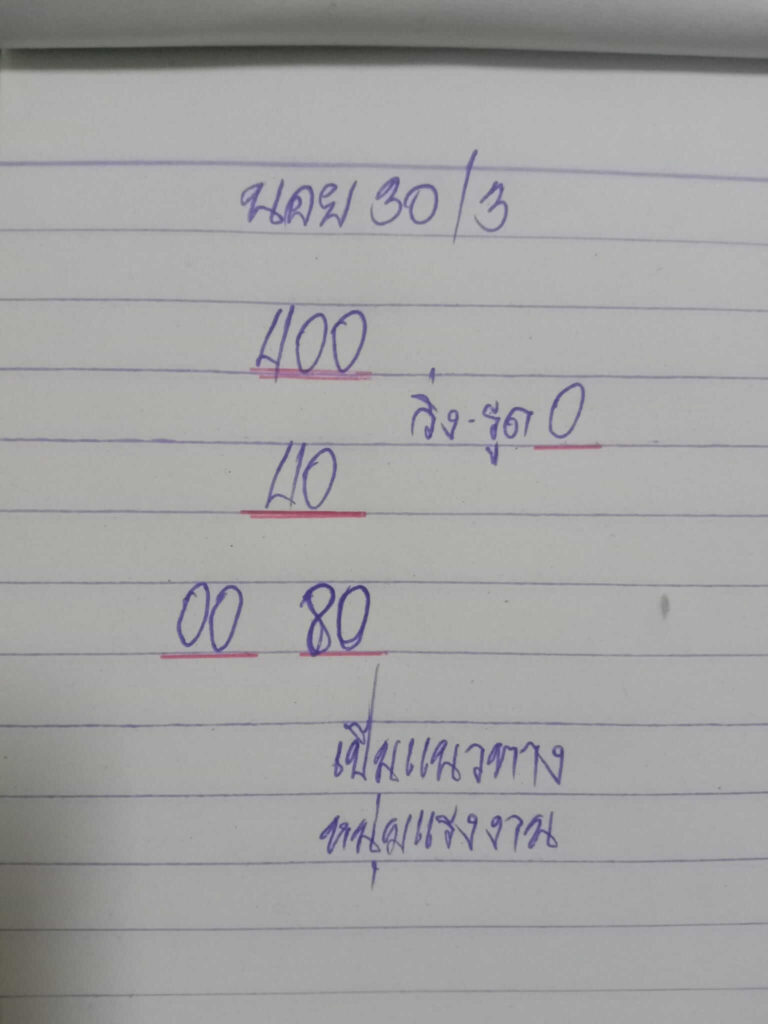 นอย 30/3
400
วิ่ง-รูด 0
40
00 80
เป็นแนวทาง
หนุ่มแรงงาน